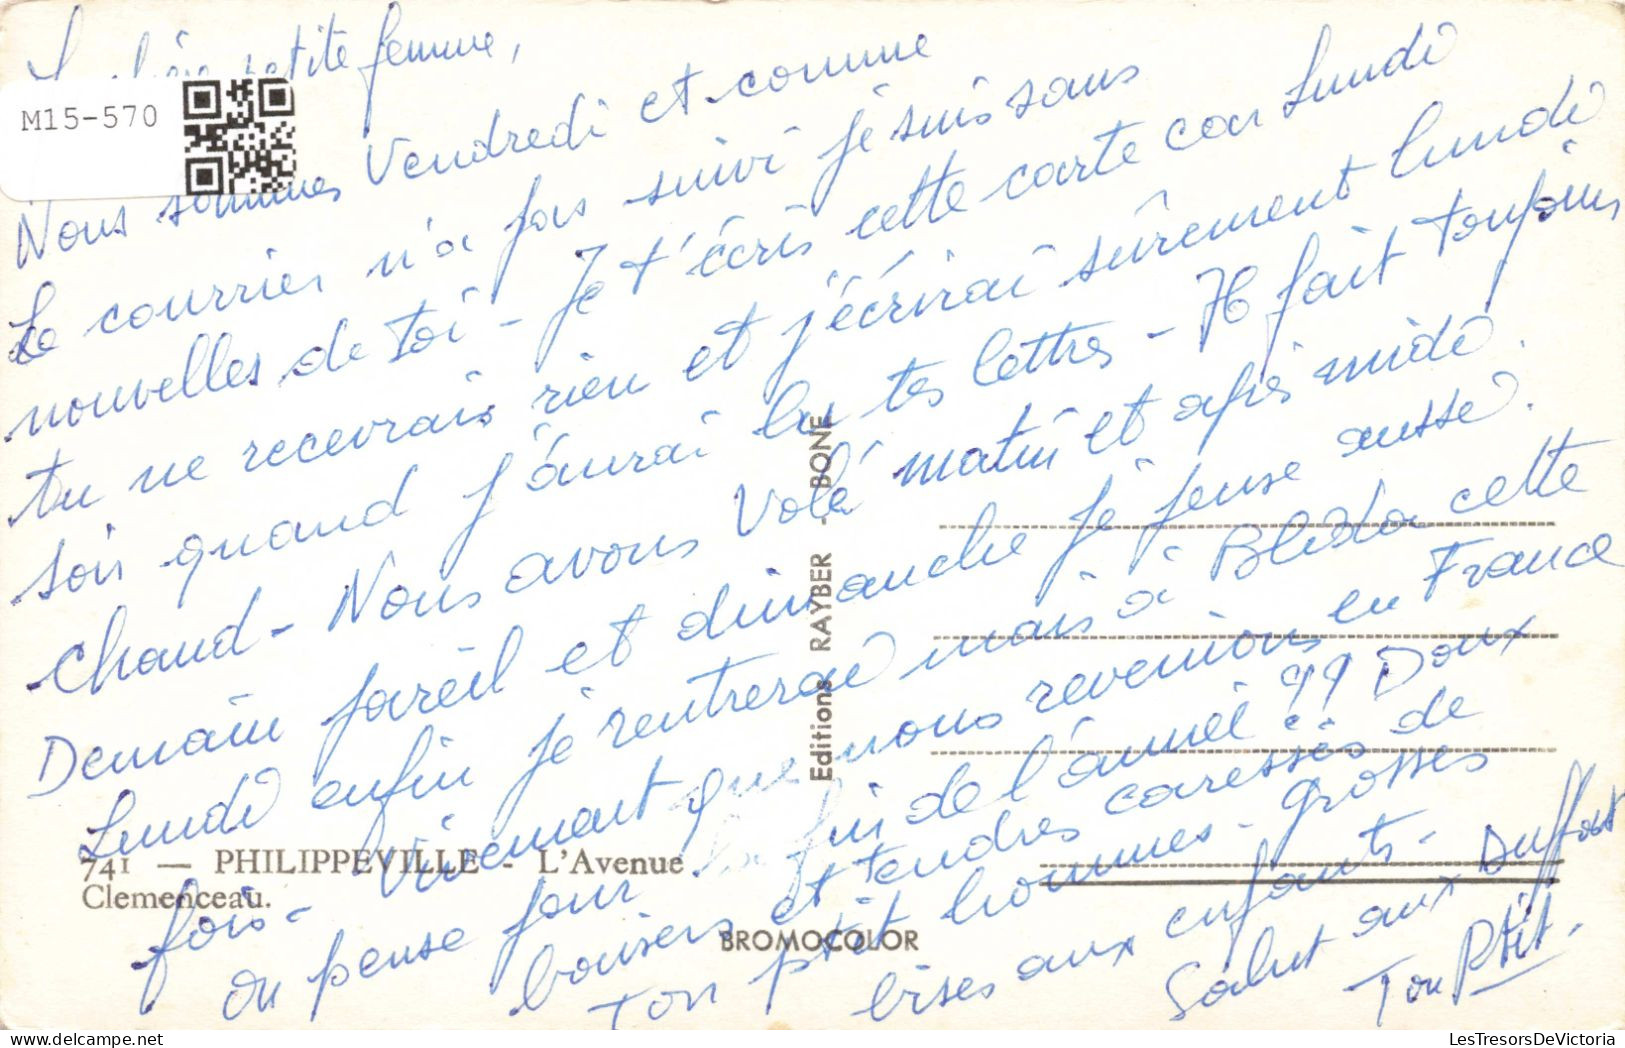 petite femme,
M15-570
Nous sommes Vendredi et comme
Le courrier n'a pas suivi je suis sans
nouvelles de toi - Je t'écris cette carte car Lundi
tu ne recevrais rien et j'écrirai sûrement lundi
soir quand j'aurai lu tes lettres - Il fait toujours
chaud - Nous avons Volé matin et après midi.
Demain pareil et dimanche je pense aussi.
Lundi enfin je rentrerai mais à Blida cette
fois - Vivement que nous revenions en France
on pense pour la fin de l'année ?? Doux
baisers et tendres caresses de
Ton ptit hommes - grosses
bises aux enfants -
Salut aux Duffort
Ton Ptit.
Editions RAYBER - BONE
741 — PHILIPPEVILLE - L'Avenue
Clemenceau.
BROMOCOLOR
LesTresorsDeVictoria